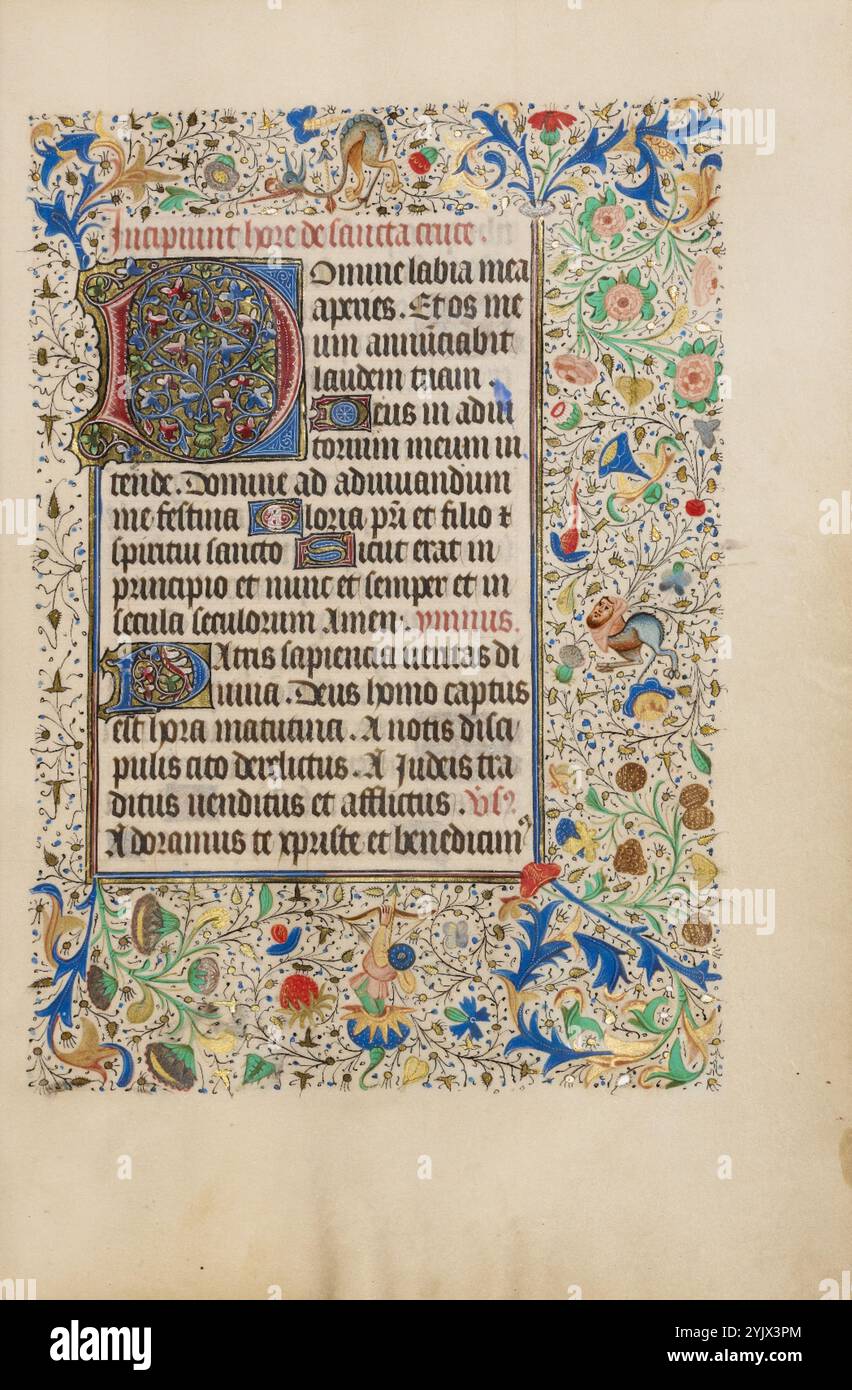 Incipiunt hore de sancta cruce.
Domine labia mea
aperies. Et os me
um annūciabit
laudem tuam.
Deus in adiu
torium meum in
tende. Domine ad adiuuandum
me festina Gloria pr̄i et filio ⁊
spiritui sancto Sicut erat in
principio et nunc et semper et in
secula seculorum Amen. ymnus.
Patris sapiencia ueritas di
uina. Deus homo captus
est hora matutina. A notis disci
pulis cito derelictus. A Judeis tra
ditus uenditus et afflictus. vs̓
Adoramus te xpriste et benedicim᷒
alamy
Image ID: 2YJX3PM
www.alamy.com